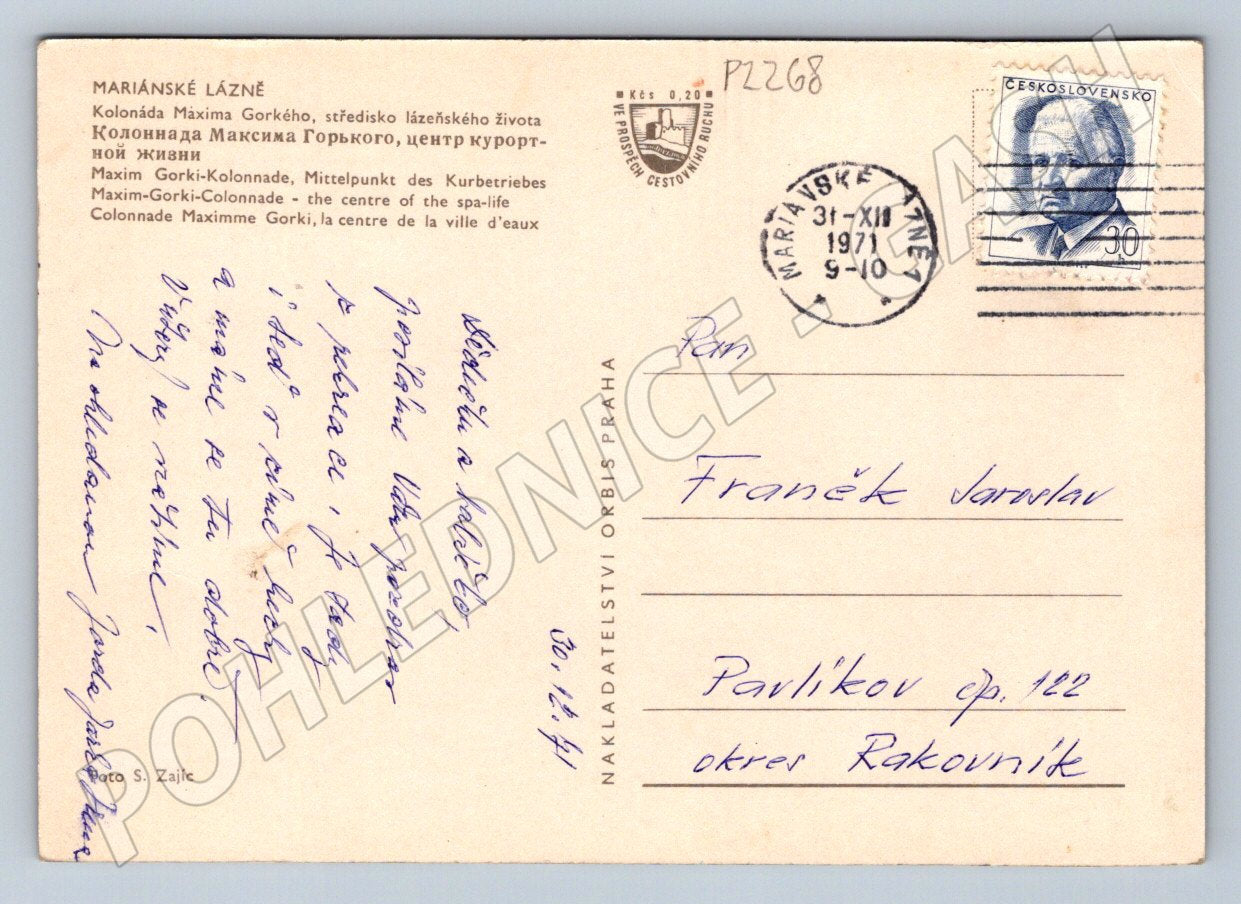 MARIÁNSKÉ LÁZNĚ
Kolonáda Maxima Gorkého, středisko lázeňského života
Колоннада Максима Горького, центр курорт-
ной жизни
Maxim Gorki-Kolonnade, Mittelpunkt des Kurbetriebes
Maxim-Gorki-Colonnade - the centre of the spa-life
Colonnade Maximme Gorki, la centre de la ville d'eaux
Kčs 0,20
VE PROSPĚCH CESTOVNÍHO RUCHU
PZ268
ČESKOSLOVENSKO
30
h
MARIÁVSKÉ AZNĚ 1
31-XII
1971
9-10
30. 12. 71
a
posíláme Vám pozdrav
a máme se tu dobře.
se
Na shledanou Jarda
Foto S. Zajíc
NAKLADATELSTVÍ ORBIS PRAHA
Pan
Franěk Jaroslav
Pavlíkov čp. 122
okres Rakovník
POHLEDNICE - GACH